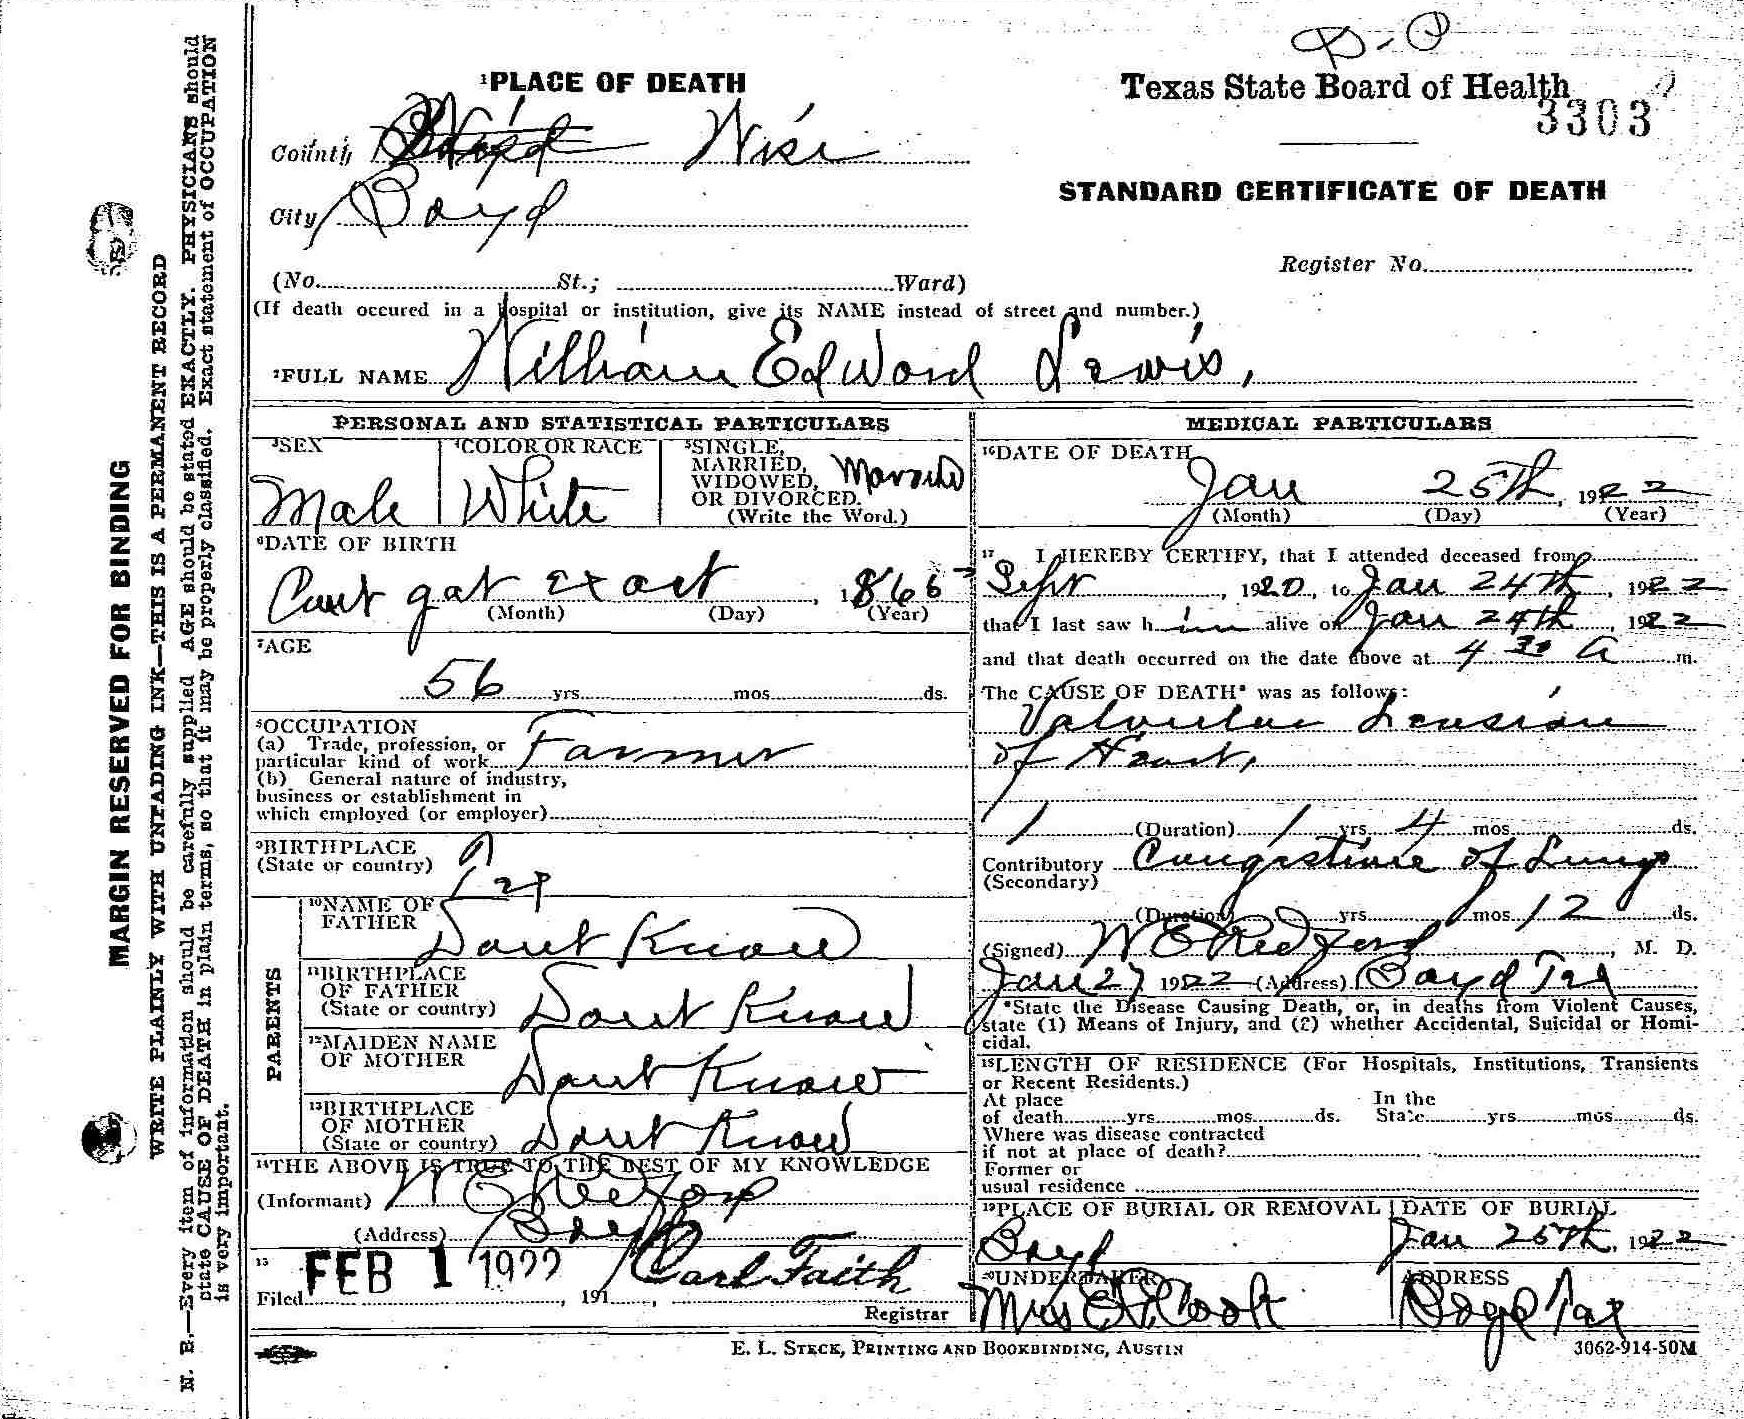 Texas State Board of Health
3303
STANDARD CERTIFICATE OF DEATH
Register No.
1PLACE OF DEATH
County Wise
City Boyd
(No. St.; Ward)
(If death occured in a hospital or institution, give its NAME instead of street and number.)
2FULL NAME William Edward Lewis,
PERSONAL AND STATISTICAL PARTICULARS
3SEX
Male
4COLOR OR RACE
White
5SINGLE,
MARRIED,
WIDOWED,
OR DIVORCED.
(Write the Word.)
Married
6DATE OF BIRTH
Cant get exact, 1866
(Month) (Day) (Year)
7AGE
56 yrs. mos. ds.
8OCCUPATION
(a) Trade, profession, or
particular kind of work Farmer
(b) General nature of industry,
business or establishment in
which employed (or employer)
9BIRTHPLACE
(State or country)
PARENTS
10NAME OF
FATHER Dont Know
11BIRTHPLACE
OF FATHER
(State or country) Dont Know
12MAIDEN NAME
OF MOTHER Dont Know
13BIRTHPLACE
OF MOTHER
(State or country) Dont Know
14THE ABOVE IS TRUE TO THE BEST OF MY KNOWLEDGE
(Informant) W E Redford
(Address) Boyd
15
FEB 1 1922 Carl Faith
Filed , 191 ,
Registrar
MEDICAL PARTICULARS
16DATE OF DEATH
Jan 25th, 1922
(Month) (Day) (Year)
17 I HEREBY CERTIFY, that I attended deceased from
Sept, 1920, to Jan 24th, 1922
that I last saw him alive on Jan 24th, 1922
and that death occurred on the date above at 4 30 A m.
The CAUSE OF DEATH* was as follows:
Valvular Leasion
of Heart,
(Duration) 1 yrs. 4 mos. ds.
Contributory Congestione of Lungs
(Secondary)
(Duration) yrs. mos. 12 ds.
(Signed) W E Redford, M. D.
Jan 27 1922 (Address) Boyd Tex
*State the Disease Causing Death, or, in deaths from Violent Causes,
state (1) Means of Injury, and (2) whether Accidental, Suicidal or Homi-
cidal.
18LENGTH OF RESIDENCE (For Hospitals, Institutions, Transients
or Recent Residents.)
At place In the
of death yrs. mos. ds. State yrs. mos. ds.
Where was disease contracted
if not at place of death?
Former or
usual residence
19PLACE OF BURIAL OR REMOVAL
Boyd
DATE OF BURIAL
Jan 25th, 1922
20UNDERTAKER
Mrs Cook
ADDRESS
Boyd Tax
E. L. STECK, PRINTING AND BOOKBINDING, AUSTIN
3062-914-50M
MARGIN RESERVED FOR BINDING
WRITE PLAINLY WITH UNFADING INK—THIS IS A PERMANENT RECORD
N. B.—Every item of information should be carefully supplied AGE should be stated EXACTLY. PHYSICIANS should
state CAUSE OF DEATH in plain terms, so that it may be properly classified. Exact statement of OCCUPATION
is very important.